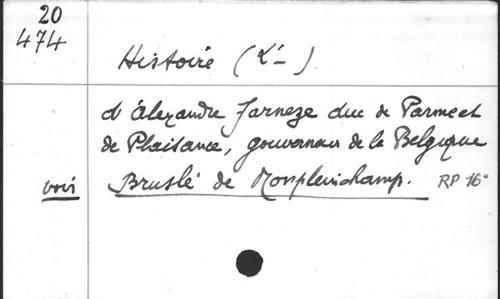 20
474
Histoire (L'—)
d'Alexandre Farneze duc de Parme et
de Plaisance, gouverneur de la Belgique
voir Bruslé de Monpleinchamp. RP 16°